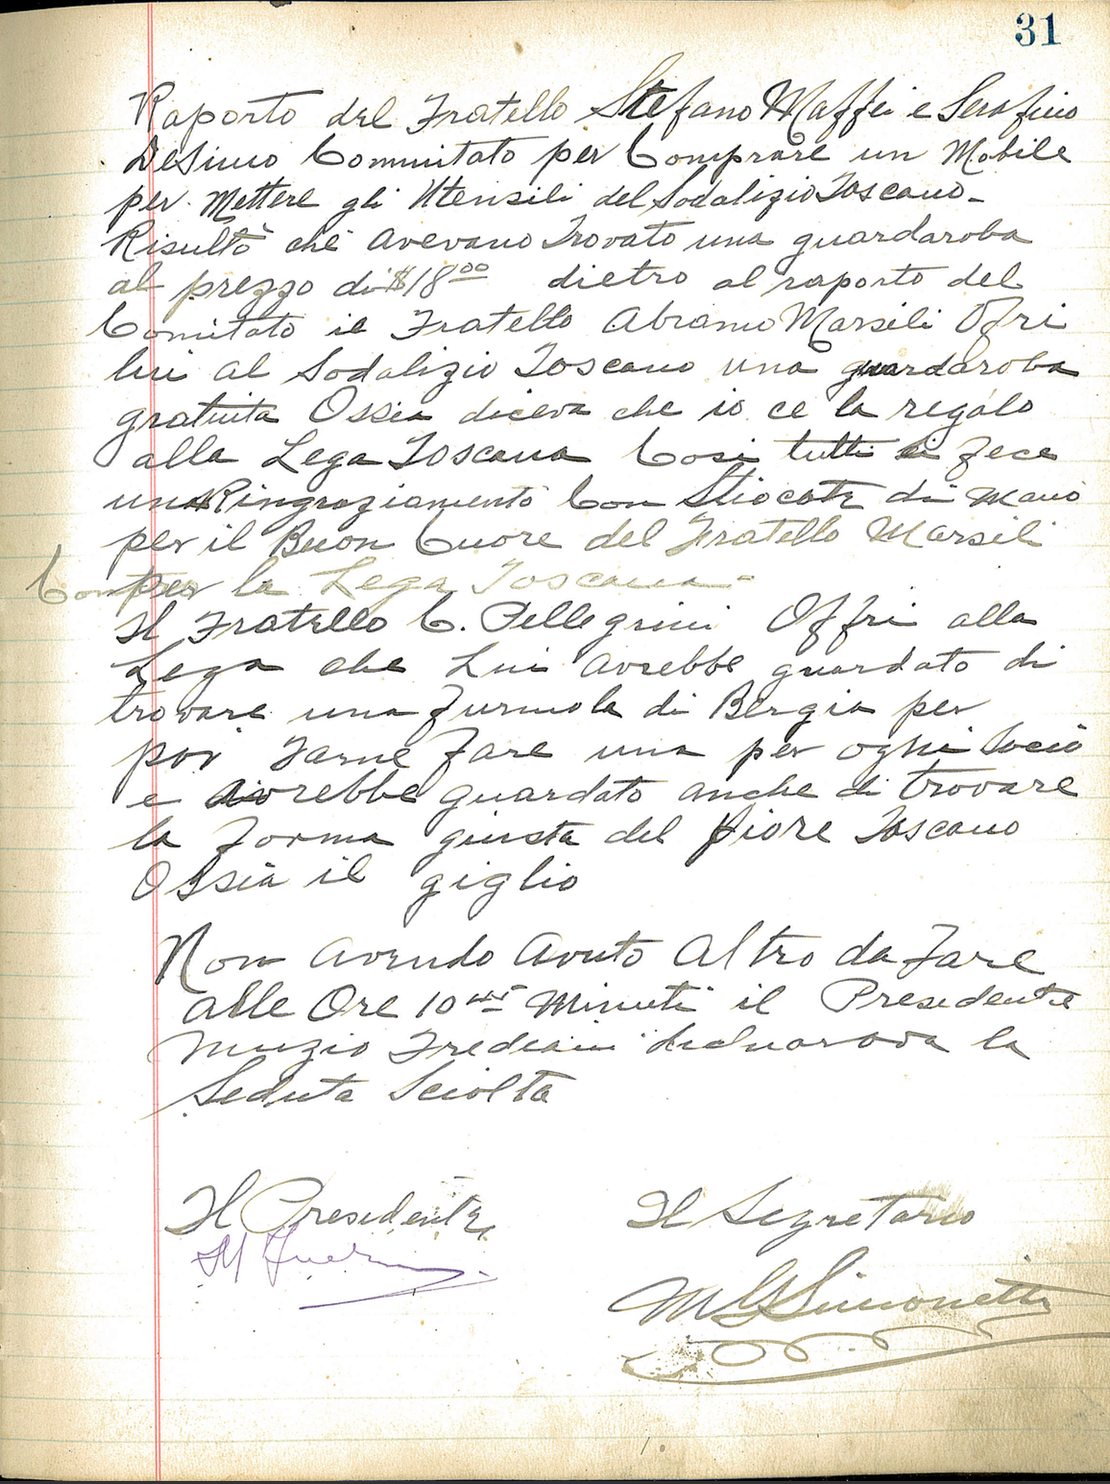 31
Raporto del Fratello Stefano Maffei e Serafino
DeSimo Commitato per Comprare un Mobile
per Mettere gli Utensili del Sodalizio Toscano-
Risultò che avevano Trovato una guardaroba
al prezzo di $18.00 dietro al raporto del
Comitato il Fratello Abramo Marsili Ofri
lui al Sodalizio Toscano una guardaroba
gratuita Ossia diceva che io ce la regalo
alla Lega Toscana Cosi tutti si fece
una Ringraziamento Con Stiocate di Mano
per il Buon Cuore del Fratello Marsili
Con per la Lega Toscana=
Il Fratello C. Pellegrini Offri alla
Lega che Lui avrebbe guardato di
trovare una furmola di Bergia per
poi Farne Fare una per oghi Socio
e avrebbe guardato anche di trovare
la Forma giusta del fiore Toscano
Ossia il giglio
Non avendo avuto altro da Fare
alle Ore 10 45 Minuti il Presidente
Muzio Frediani dichiarava la
Seduta Sciolta
Il Presidente Il Segretario
M Simonetti